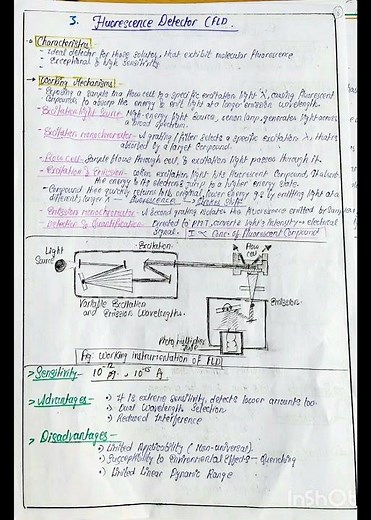 3. Fluorescence Detector (FLD).
→ Characteristics
- Ideal detector for those solutes, that exhibit molecular fluorescence
- Exceptional & high sensitivity
→ Working Mechanisms
- Exposing a sample in a flow cell to a specific excitation light λ, causing fluorescent
compounds to absorb the energy & emit light at a longer emission wavelength.
- Excitation light source - High-energy light source, xenon lamp, generates light across
a broad spectrum.
- Excitation monochromator - A grating/filter selects a specific excitation λ, that is
absorbed by a target compound.
- Flow cell - Sample flows through cell, & excitation light passes through it.
- Excitation & Emission - when excitation light hits fluorescent compound, it absorbs
the energy & its electrons jump to a higher energy state.
- Compound then quickly returns to its original lower energy g.s by emitting light at a
different, longer λ → fluorescence → Stokes shift
- Emission monochromator - A second grating isolates the fluorescence emitted by the
- Detection & Quantification - Directed to PMT, converts light's intensity → electrical
signal. I ∝ Conc. of Fluorescent Compound
Light
Source
Excitation
Flow
cell
Variable Excitation
and Emission Wavelengths.
Emission
Photomultiplier
tube
Fig: Working Instrumentation of FLD
→ Sensitivity - 10⁻¹² g, 10⁻¹⁵ g
→ Advantages - • It is extreme sensitivity, detects lower amounts too.
• Dual Wavelength Selection
• Reduced Interference
→ Disadvantages -
• Limited Applicability (Non-universal)
• Susceptibility to Environmental Effects - quenching
• Limited Linear Dynamic Range
InShOt